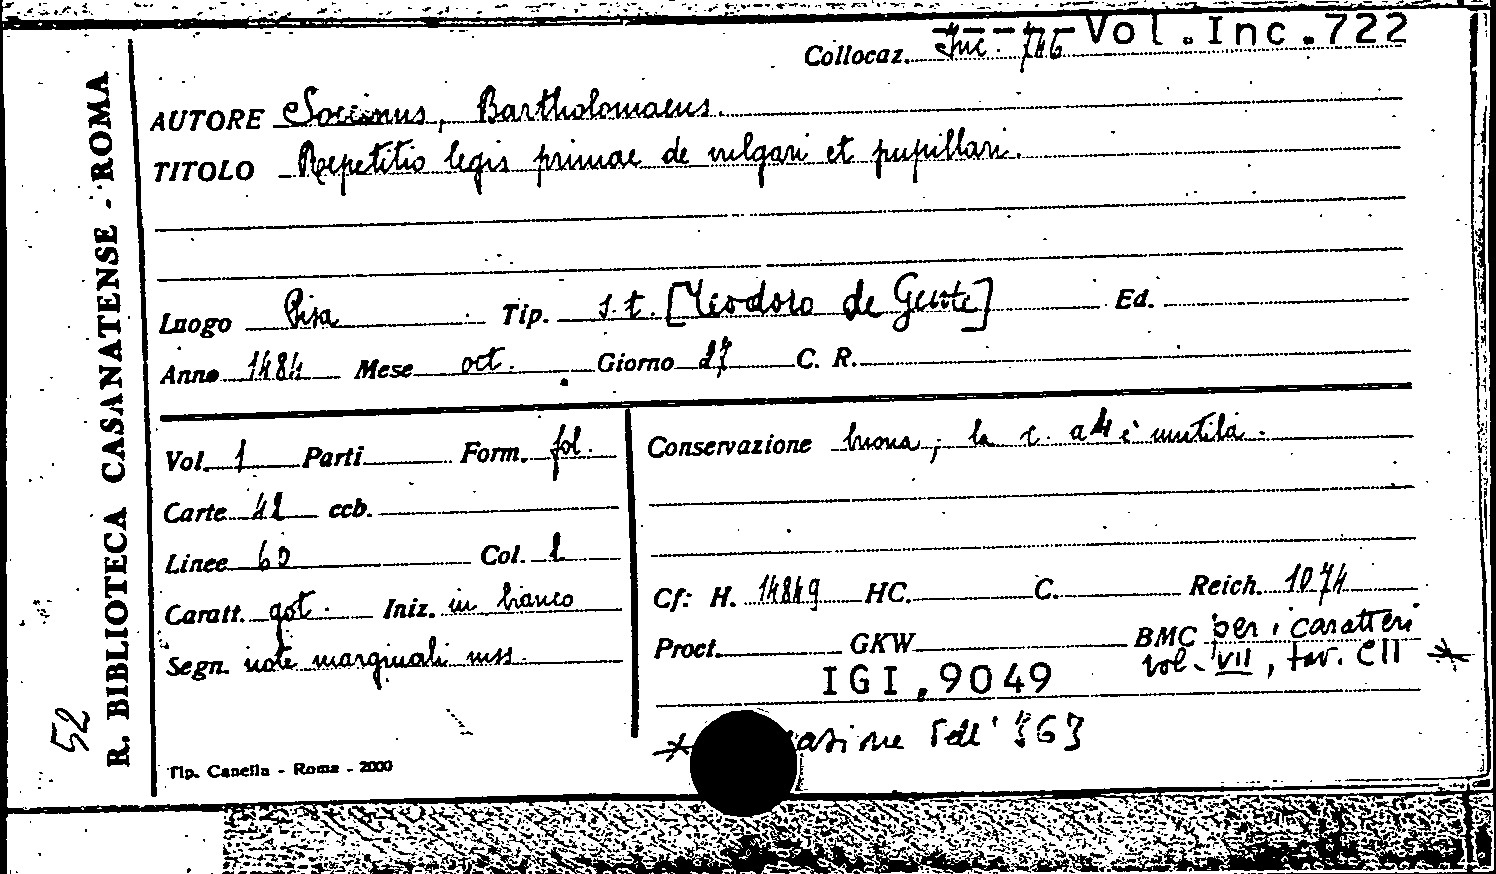 Collocaz. Inc. 746 Vol.Inc.722
AUTORE Socinus, Bartholomaeus.
TITOLO Repetitio legis primae de vulgari et pupillari.
Luogo Pisa Tip. s.t. [Teodoro de Gente] Ed.
Anno 1484 Mese oct. Giorno 27 C. R.
Vol. 1 Parti Form. fol.
Carte 42 ccb.
Linee 60 Col. 2
Caratt. got. Iniz. in bianco
Segn. note marginali mss.
Tip. Canella - Roma - 2000
Conservazione buona; la c. a4 è mutila.
Cf: H. 14849 HC. C. Reich. 1074
Proct. GKW BMC per i caratteri
IGI.9049 vol. VII, tav. CII *
* azione dell'
R. BIBLIOTECA CASANATENSE - ROMA
52